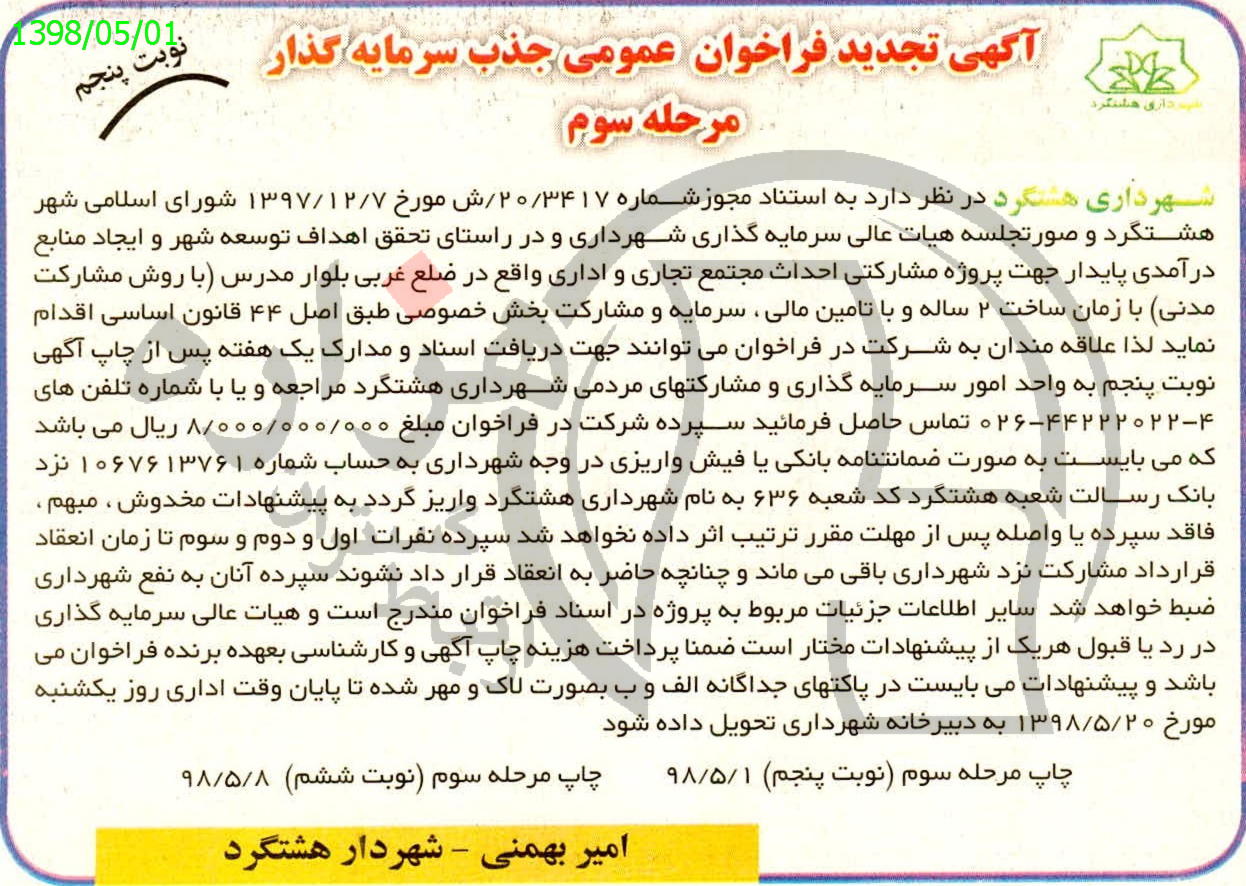 1398/05/01
نوبت پنجم
آگهی تجدید فراخوان عمومی جذب سرمایه گذار
مرحله سوم
شهرداری هشتگرد
شهرداری هشتگرد در نظر دارد به استناد مجوزشماره ۲۰/۳۴۱۷/ش مورخ ۱۳۹۷/۱۲/۷ شورای اسلامی شهر
هشتگرد و صورتجلسه هیات عالی سرمایه گذاری شهرداری و در راستای تحقق اهداف توسعه شهر و ایجاد منابع
درآمدی پایدار جهت پروژه مشارکتی احداث مجتمع تجاری و اداری واقع در ضلع غربی بلوار مدرس (با روش مشارکت
مدنی) با زمان ساخت ۲ ساله و با تامین مالی ، سرمایه و مشارکت بخش خصوصی طبق اصل ۴۴ قانون اساسی اقدام
نماید لذا علاقه مندان به شرکت در فراخوان می توانند جهت دریافت اسناد و مدارک یک هفته پس از چاپ آگهی
نوبت پنجم به واحد امور سرمایه گذاری و مشارکتهای مردمی شهرداری هشتگرد مراجعه و یا با شماره تلفن های
۰۲۶-۴۴۲۲۲۰۲۲-۴ تماس حاصل فرمائید سپرده شرکت در فراخوان مبلغ ۸/۰۰۰/۰۰۰/۰۰۰ ریال می باشد
که می بایست به صورت ضمانتنامه بانکی یا فیش واریزی در وجه شهرداری به حساب شماره ۱۰۶۷۶۱۳۷۶۱ نزد
بانک رسالت شعبه هشتگرد کد شعبه ۶۳۶ به نام شهرداری هشتگرد واریز گردد به پیشنهادات مخدوش ، مبهم ،
فاقد سپرده یا واصله پس از مهلت مقرر ترتیب اثر داده نخواهد شد سپرده نفرات اول و دوم و سوم تا زمان انعقاد
قرارداد مشارکت نزد شهرداری باقی می ماند و چنانچه حاضر به انعقاد قرار داد نشوند سپرده آنان به نفع شهرداری
ضبط خواهد شد سایر اطلاعات جزئیات مربوط به پروژه در اسناد فراخوان مندرج است و هیات عالی سرمایه گذاری
در رد یا قبول هریک از پیشنهادات مختار است ضمنا پرداخت هزینه چاپ آگهی و کارشناسی بعهده برنده فراخوان می
باشد و پیشنهادات می بایست در پاکتهای جداگانه الف و ب بصورت لاک و مهر شده تا پایان وقت اداری روز یکشنبه
مورخ ۱۳۹۸/۵/۲۰ به دبیرخانه شهرداری تحویل داده شود
چاپ مرحله سوم (نوبت پنجم) ۹۸/۵/۱ چاپ مرحله سوم (نوبت ششم) ۹۸/۵/۸
امیر بهمنی - شهردار هشتگرد
هزاره